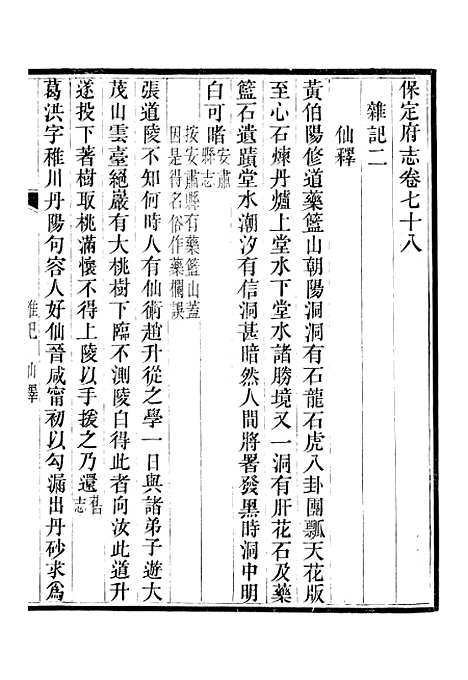 保定府志卷七十八
雜記二
仙釋
黃伯陽修道藥籃山朝陽洞洞有石龍石虎八卦團瓢天花版
至心石煉丹爐上堂水下堂水諸勝境又一洞有肝花石及藥
籃石遺蹟堂水潮汐有信洞甚暗然人間將暑發黑時洞中明
白可睹安肅縣志
按安肅縣有藥籃山蓋
因是得名俗作藥欄誤
張道陵不知何時人有仙術趙升從之學一日與諸弟子遊大
茂山雲臺絕巖有大桃樹下臨不測陵曰得此者向汝此道升
遂投下著樹取桃滿懷不得上陵以手援之乃還舊志
葛洪字稚川丹陽句容人好仙晉咸甯初以勾漏出丹砂求爲
雜記 仙釋